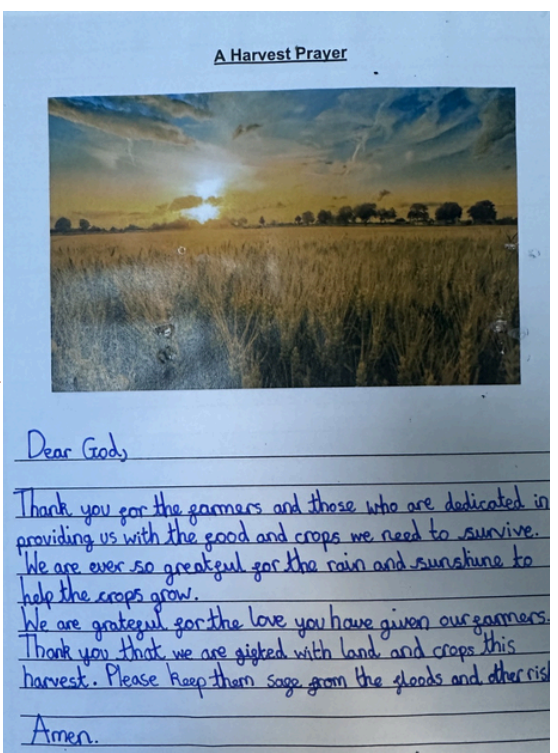 A Harvest Prayer
Dear God,
Thank you for the farmers and those who are dedicated in
providing us with the food and crops we need to survive.
We are ever so greatful for the rain and sunshine to
help the crops grow.
We are grateful for the love you have given our farmers.
Thank you that we are gifted with land and crops this
harvest. Please keep them safe from the floods and other
Amen.